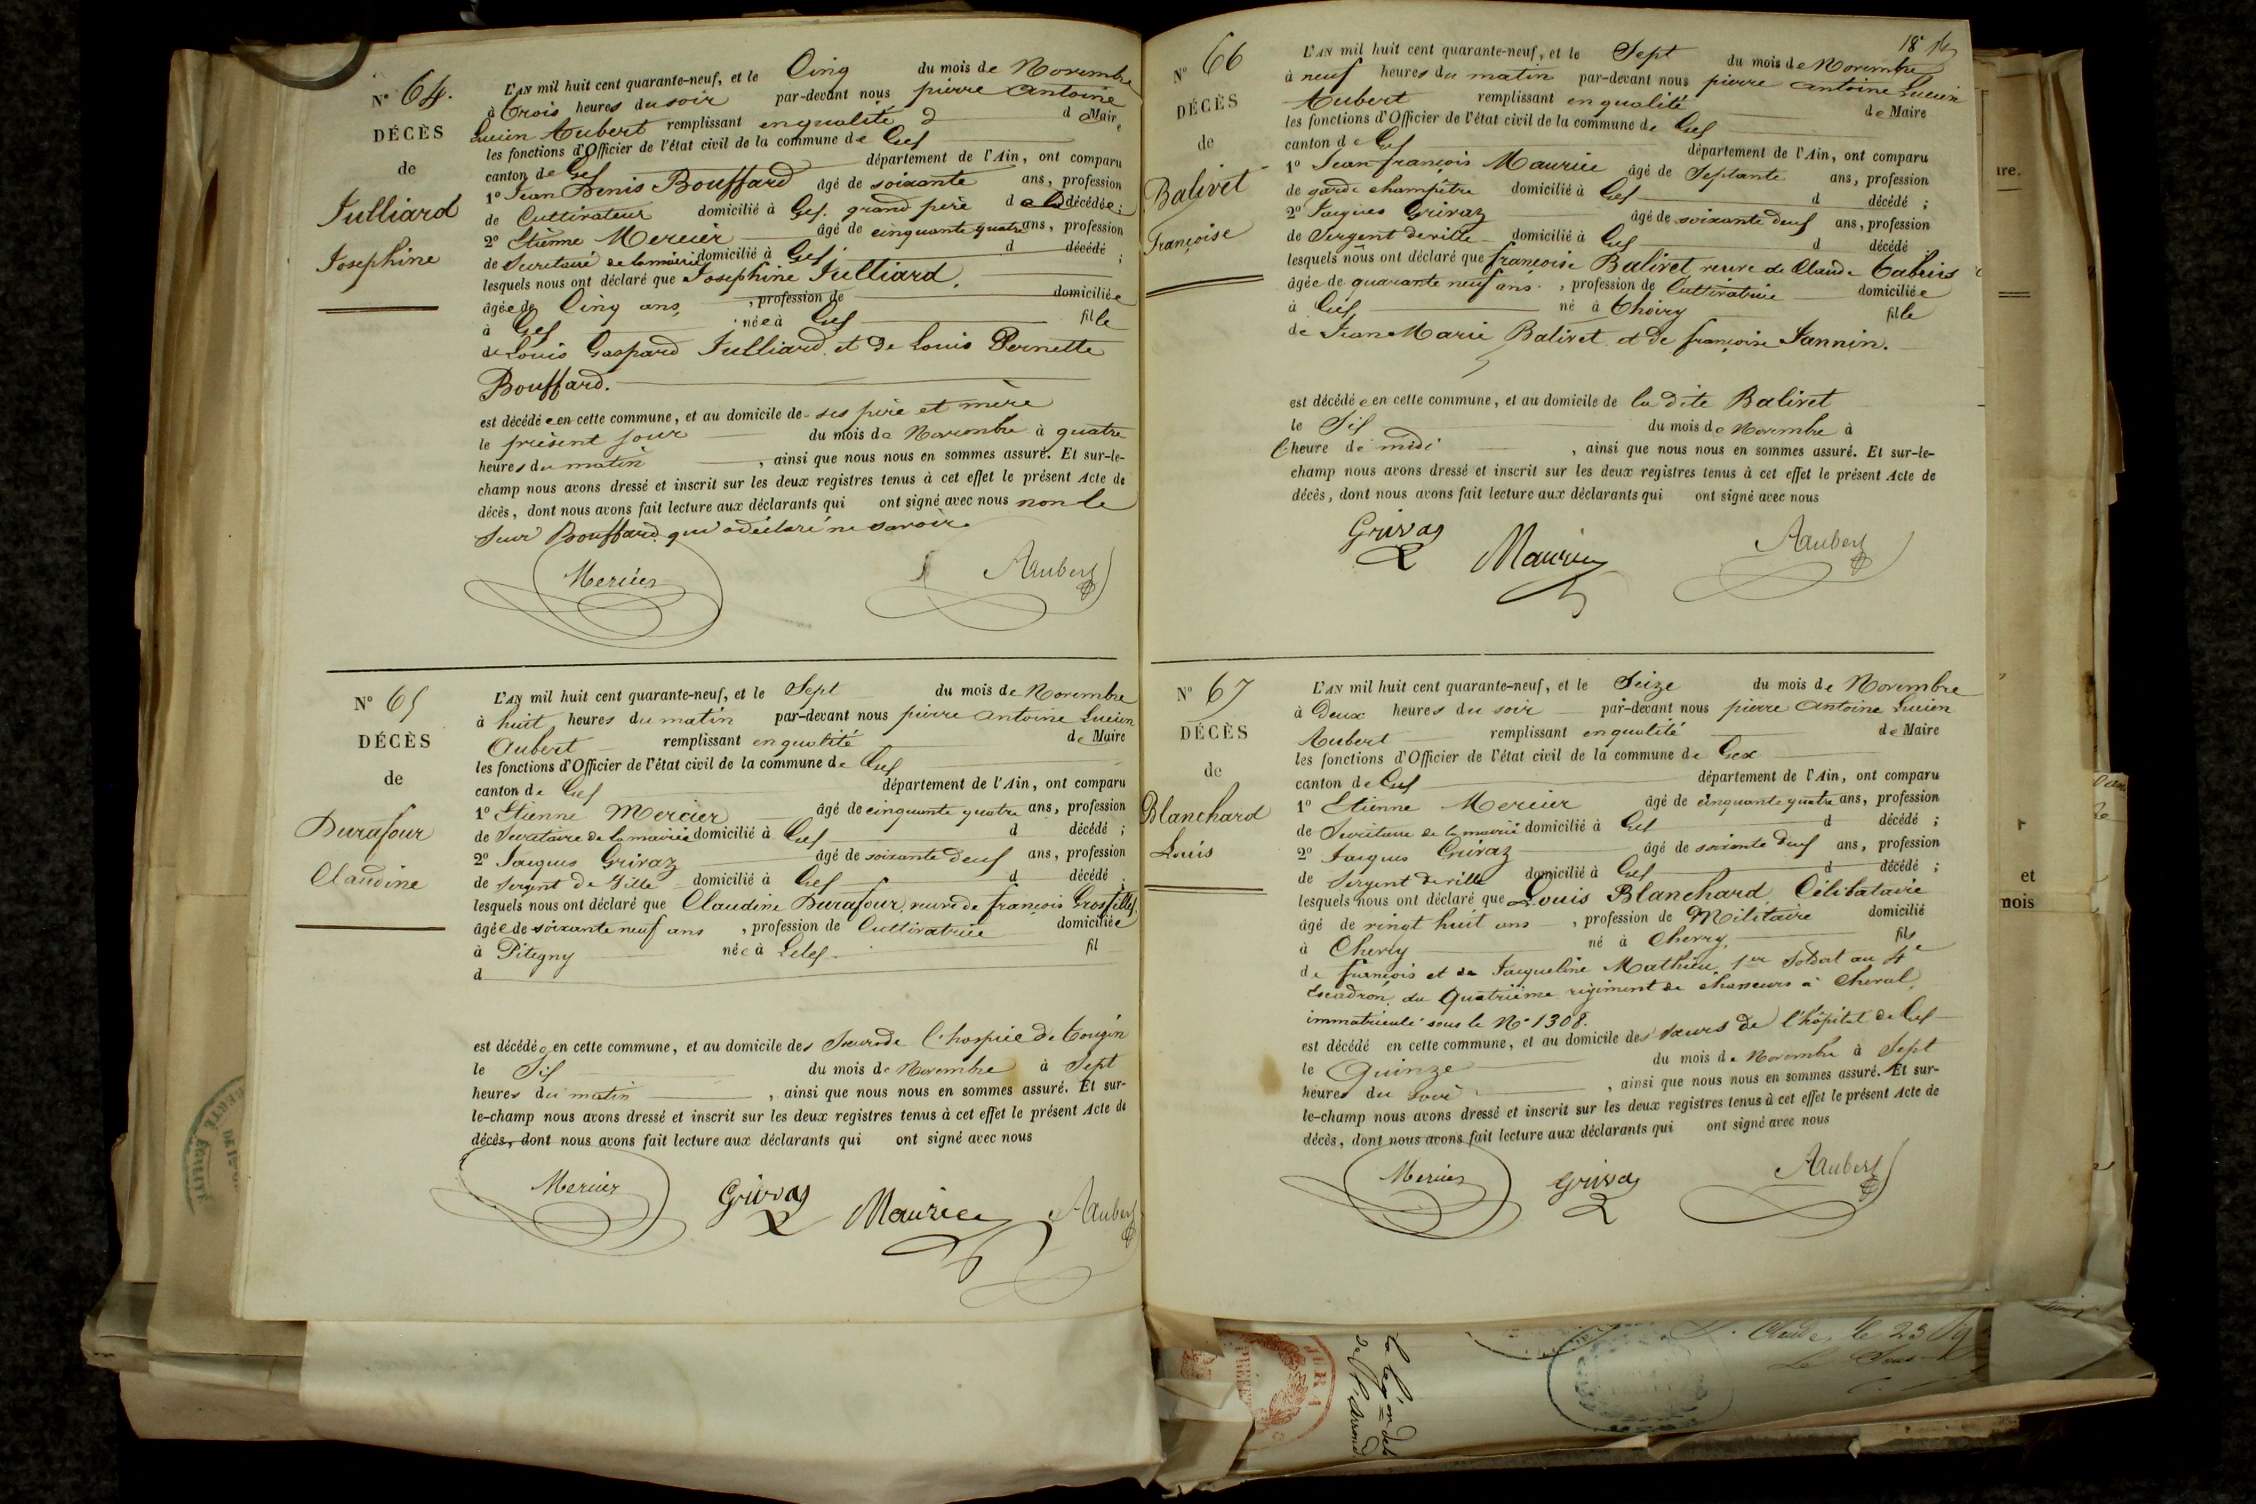 N° 64.
DÉCÈS
de
Julliard
Josephine
L'AN mil huit cent quarante-neuf, et le Cinq du mois de Novembre
à Trois heures du soir par-devant nous pierre Antoine
Lucien Aubert remplissant en qualité d de Maire
les fonctions d'Officier de l'état civil de la commune de Gex
canton de Gex département de l'Ain, ont comparu
1° Jean Denis Bouffard âgé de soixante ans, profession
de Cultivateur domicilié à Gex. grand père de la décédée;
2° Etienne Mercier âgé de cinquante quatre ans, profession
de Secretaire de la mairie domicilié à Gex d décédé ;
lesquels nous ont déclaré que Josephine Julliard,
âgée de Cinq ans, , profession de domiciliée
à Gex née à Gex fille
de Louis Gaspard Julliard et de Louis Pernette
Bouffard.
est décédée en cette commune, et au domicile de ses père et mère
le présent jour du mois de Novembre à quatre
heures du matin , ainsi que nous nous en sommes assuré. Et sur-le-
champ nous avons dressé et inscrit sur les deux registres tenus à cet effet le présent Acte de
décès, dont nous avons fait lecture aux déclarants qui ont signé avec nous non le
Sieur Bouffard qui a déclaré ne savoir.
Mercier AAubert
N° 65
DÉCÈS
de
Durafour
Claudine
L'AN mil huit cent quarante-neuf, et le Sept du mois de Novembre
à huit heures du matin par-devant nous pierre Antoine Lucien
Aubert remplissant en qualité de Maire
les fonctions d'Officier de l'état civil de la commune de Gex
canton de Gex département de l'Ain, ont comparu
1° Etienne Mercier âgé de cinquante quatre ans, profession
de Secretaire de la mairie domicilié à Gex d décédé ;
2° Jacques Grivaz âgé de soixante deux ans, profession
de Sergent de Ville domicilié à Gex d décédé ;
lesquels nous ont déclaré que Claudine Durafour, veuve de françois Grosfilley,
âgée de soixante neuf ans , profession de Cultivatrice domiciliée
à Pitegny née à Lelex fil
d
est décédée en cette commune, et au domicile des Soeurs de l'hospice de Tougin
le Six du mois de Novembre à Sept
heures du matin , ainsi que nous nous en sommes assuré. Et sur-
le-champ nous avons dressé et inscrit sur les deux registres tenus à cet effet le présent Acte de
décès, dont nous avons fait lecture aux déclarants qui ont signé avec nous
Mercier Grivaz Maurice AAubert
18e
N° 66
DÉCÈS
de
Balivet
Françoise
L'AN mil huit cent quarante-neuf, et le Sept du mois de Novembre
à neuf heures du matin par-devant nous pierre Antoine Lucien
Aubert remplissant en qualité de Maire
les fonctions d'Officier de l'état civil de la commune de Gex
canton de Gex département de l'Ain, ont comparu
1° Jean françois Maurice âgé de Septante ans, profession
de garde champêtre domicilié à Gex d décédé ;
2° Jacques Grivaz âgé de soixante deux ans, profession
de Sergent de ville domicilié à Gex d décédé
lesquels nous ont déclaré que françoise Balivet veuve de Claude
âgée de quarante neuf ans. , profession de Cultivatrice domiciliée
à Gex né à Thoiry fille
de Jean Marie Balivet et de françoise Jannin.
est décédée en cette commune, et au domicile de la dite Balivet
le Six du mois de Novembre à
l'heure de midi , ainsi que nous nous en sommes assuré. Et sur-le-
champ nous avons dressé et inscrit sur les deux registres tenus à cet effet le présent Acte de
décès, dont nous avons fait lecture aux déclarants qui ont signé avec nous
Grivaz Maurice AAubert
N° 67
DÉCÈS
de
Blanchard
Louis
L'AN mil huit cent quarante-neuf, et le Seize du mois de Novembre
à Deux heures du soir par-devant nous pierre Antoine Lucien
Aubert remplissant en qualité de Maire
les fonctions d'Officier de l'état civil de la commune de Gex
canton de Gex département de l'Ain, ont comparu
1° Etienne Mercier âgé de cinquante quatre ans, profession
de Secrétaire de la mairie domicilié à Gex d décédé ;
2° Jacques Grivaz âgé de soixante deux ans, profession
de Sergent de ville domicilié à Gex d décédé ;
lesquels nous ont déclaré que Louis Blanchard, Célibataire
âgé de vingt huit ans , profession de Militaire domicilié
à Chevry né à Chevry, fils
de françois et de Jacqueline Mathieu, 1er Soldat au 4e
Escadron, du Quatrième régiment de chasseurs à Cheval,
immatriculé sous le N° 1308.
est décédé en cette commune, et au domicile des soeurs de l'hôpital de Gex
le Quinze du mois de Novembre à Sept
heures du soir , ainsi que nous nous en sommes assuré. Et sur-
le-champ nous avons dressé et inscrit sur les deux registres tenus à cet effet le présent Acte de
décès, dont nous avons fait lecture aux déclarants qui ont signé avec nous
Mercier Grivaz AAubert
et
nois